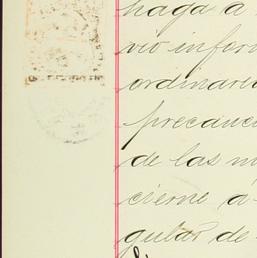 haga á
vio infor
ordinari
precauci
de las m
cierne á
gular de